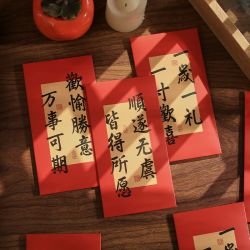 歡愉勝意
万事可期
順遂无虞
皆得所愿
一歲一礼
一寸歡喜